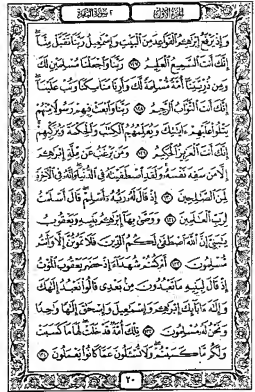 الجُزْءُ الأَوَّلُ ٢ سُورَةُ البَقَرَةِ
وَإِذْ يَرْفَعُ إِبْرَٰهِـۧمُ ٱلْقَوَاعِدَ مِنَ ٱلْبَيْتِ وَإِسْمَٰعِيلُ رَبَّنَا تَقَبَّلْ مِنَّآ
إِنَّكَ أَنتَ ٱلسَّمِيعُ ٱلْعَلِيمُ ١٢٧ رَبَّنَا وَٱجْعَلْنَا مُسْلِمَيْنِ لَكَ
وَمِن ذُرِّيَّتِنَآ أُمَّةً مُّسْلِمَةً لَّكَ وَأَرِنَا مَنَاسِكَنَا وَتُبْ عَلَيْنَآ
إِنَّكَ أَنتَ ٱلتَّوَّابُ ٱلرَّحِيمُ ١٢٨ رَبَّنَا وَٱبْعَثْ فِيهِمْ رَسُولًا مِّنْهُمْ
يَتْلُوا۟ عَلَيْهِمْ ءَايَٰتِكَ وَيُعَلِّمُهُمُ ٱلْكِتَٰبَ وَٱلْحِكْمَةَ وَيُزَكِّيهِمْ
إِنَّكَ أَنتَ ٱلْعَزِيزُ ٱلْحَكِيمُ ١٢٩ وَمَن يَرْغَبُ عَن مِّلَّةِ إِبْرَٰهِـۧمَ
إِلَّا مَن سَفِهَ نَفْسَهُۥ وَلَقَدِ ٱصْطَفَيْنَٰهُ فِى ٱلدُّنْيَا وَإِنَّهُۥ فِى ٱلْءَاخِرَةِ
لَمِنَ ٱلصَّٰلِحِينَ ١٣٠ إِذْ قَالَ لَهُۥ رَبُّهُۥٓ أَسْلِمْ قَالَ أَسْلَمْتُ
لِرَبِّ ٱلْعَٰلَمِينَ ١٣١ وَوَصَّىٰ بِهَآ إِبْرَٰهِـۧمُ بَنِيهِ وَيَعْقُوبُ
يَٰبَنِىَّ إِنَّ ٱللَّهَ ٱصْطَفَىٰ لَكُمُ ٱلدِّينَ فَلَا تَمُوتُنَّ إِلَّا وَأَنتُم
مُّسْلِمُونَ ١٣٢ أَمْ كُنتُمْ شُهَدَآءَ إِذْ حَضَرَ يَعْقُوبَ ٱلْمَوْتُ
إِذْ قَالَ لِبَنِيهِ مَا تَعْبُدُونَ مِنۢ بَعْدِى قَالُوا۟ نَعْبُدُ إِلَٰهَكَ
وَإِلَٰهَ ءَابَآئِكَ إِبْرَٰهِـۧمَ وَإِسْمَٰعِيلَ وَإِسْحَٰقَ إِلَٰهًا وَٰحِدًا
وَنَحْنُ لَهُۥ مُسْلِمُونَ ١٣٣ تِلْكَ أُمَّةٌ قَدْ خَلَتْ لَهَا مَا كَسَبَتْ
وَلَكُم مَّا كَسَبْتُمْ وَلَا تُسْـَٔلُونَ عَمَّا كَانُوا۟ يَعْمَلُونَ ١٣٤
٢٠